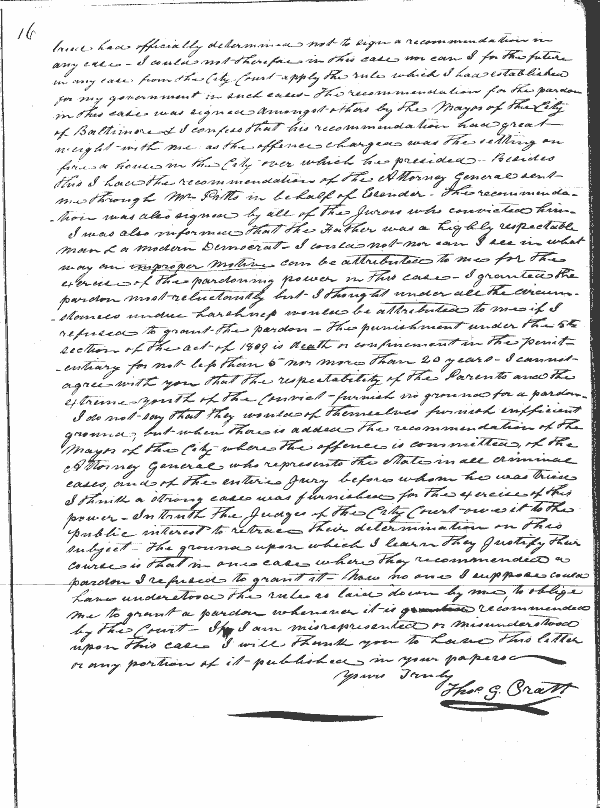 16
had officially determined not to sign a recommendation in
any case - I could not therefore in this case nor can I for the future
in any case from the City Court apply the rule which I had established
for my government in such cases - The recommendation for the pardon
in this case was signed amongst others by the Mayor of the City
of Baltimore & I confess that his recommendation had great
weight with me as the offence charged was the setting on
fire a house in the City over which he presided - Besides
this I had the recommendation of the Attorney General sent
me through Mr Pitts in behalf of - The recommenda-
-tion was also signed by all of the Jurors who convicted him -
I was also informed that the Father was a highly respectable
man & a modern Democrat - I could not nor can I see in what
way an improper motive can be attributed to me for the
exercise of the pardoning power in this case - I granted the
pardon most reluctantly but I thought under all the circum-
-stances undue harshness would be attributed to me if I
refused to grant the pardon - The punishment under the 5th
section of the act of 1809 is death or confinement in the penit-
-entiary for not less than 5 nor more than 20 years - I cannot
agree with you that the respectability of the Parents and the
extreme youth of the Convict furnish no ground for a pardon -
I do not say that they would of themselves furnish sufficient
ground, but when there is added the recommendation of the
Mayor of the City where the offence is committed, of the
Attorney General who represents the State in all criminal
cases, and of the entire Jury before whom he was tried
I think a strong case was furnished for the exercise of this
power - In truth the Judges of the City Court owe it to the
public interest to retrace their determination on this
subject - The ground upon which I learn they justify their
course is that in one case where they recommended a
pardon I refused to grant it - Now no one I suppose could
have understood the rule as laid down by me to oblige
me to grant a pardon whenever it is recommended
by the Court - If I am misrepresented or misunderstood
upon this case I will thank you to have this letter
or any portion of it published in your papers
Yours Truly
Thos G. Pratt